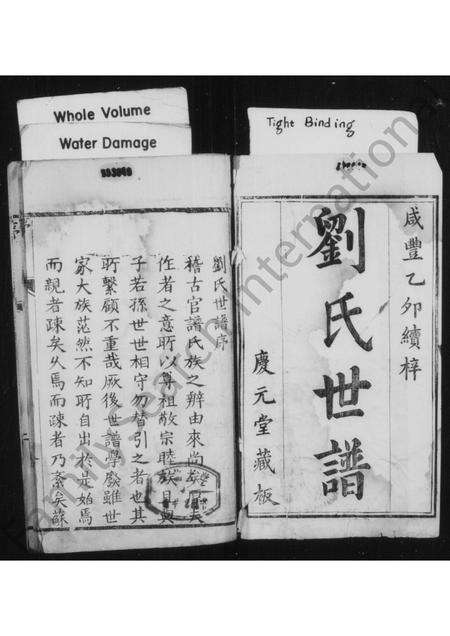 Whole Volume
Water Damage
Tight Binding
咸豐乙卯續梓
劉氏世譜
慶元堂藏板
劉氏世譜序
稽古官譜氏族之辯由來尚矣
作者之意所以尊祖敬宗睦族
子若孫世世相守勿替引之者也其
所繫顧不重哉厥後世譜學廢雖世
家大族茫然不知所自出於是始焉
而親者疎矣久焉而疎者乃紊矣蘇